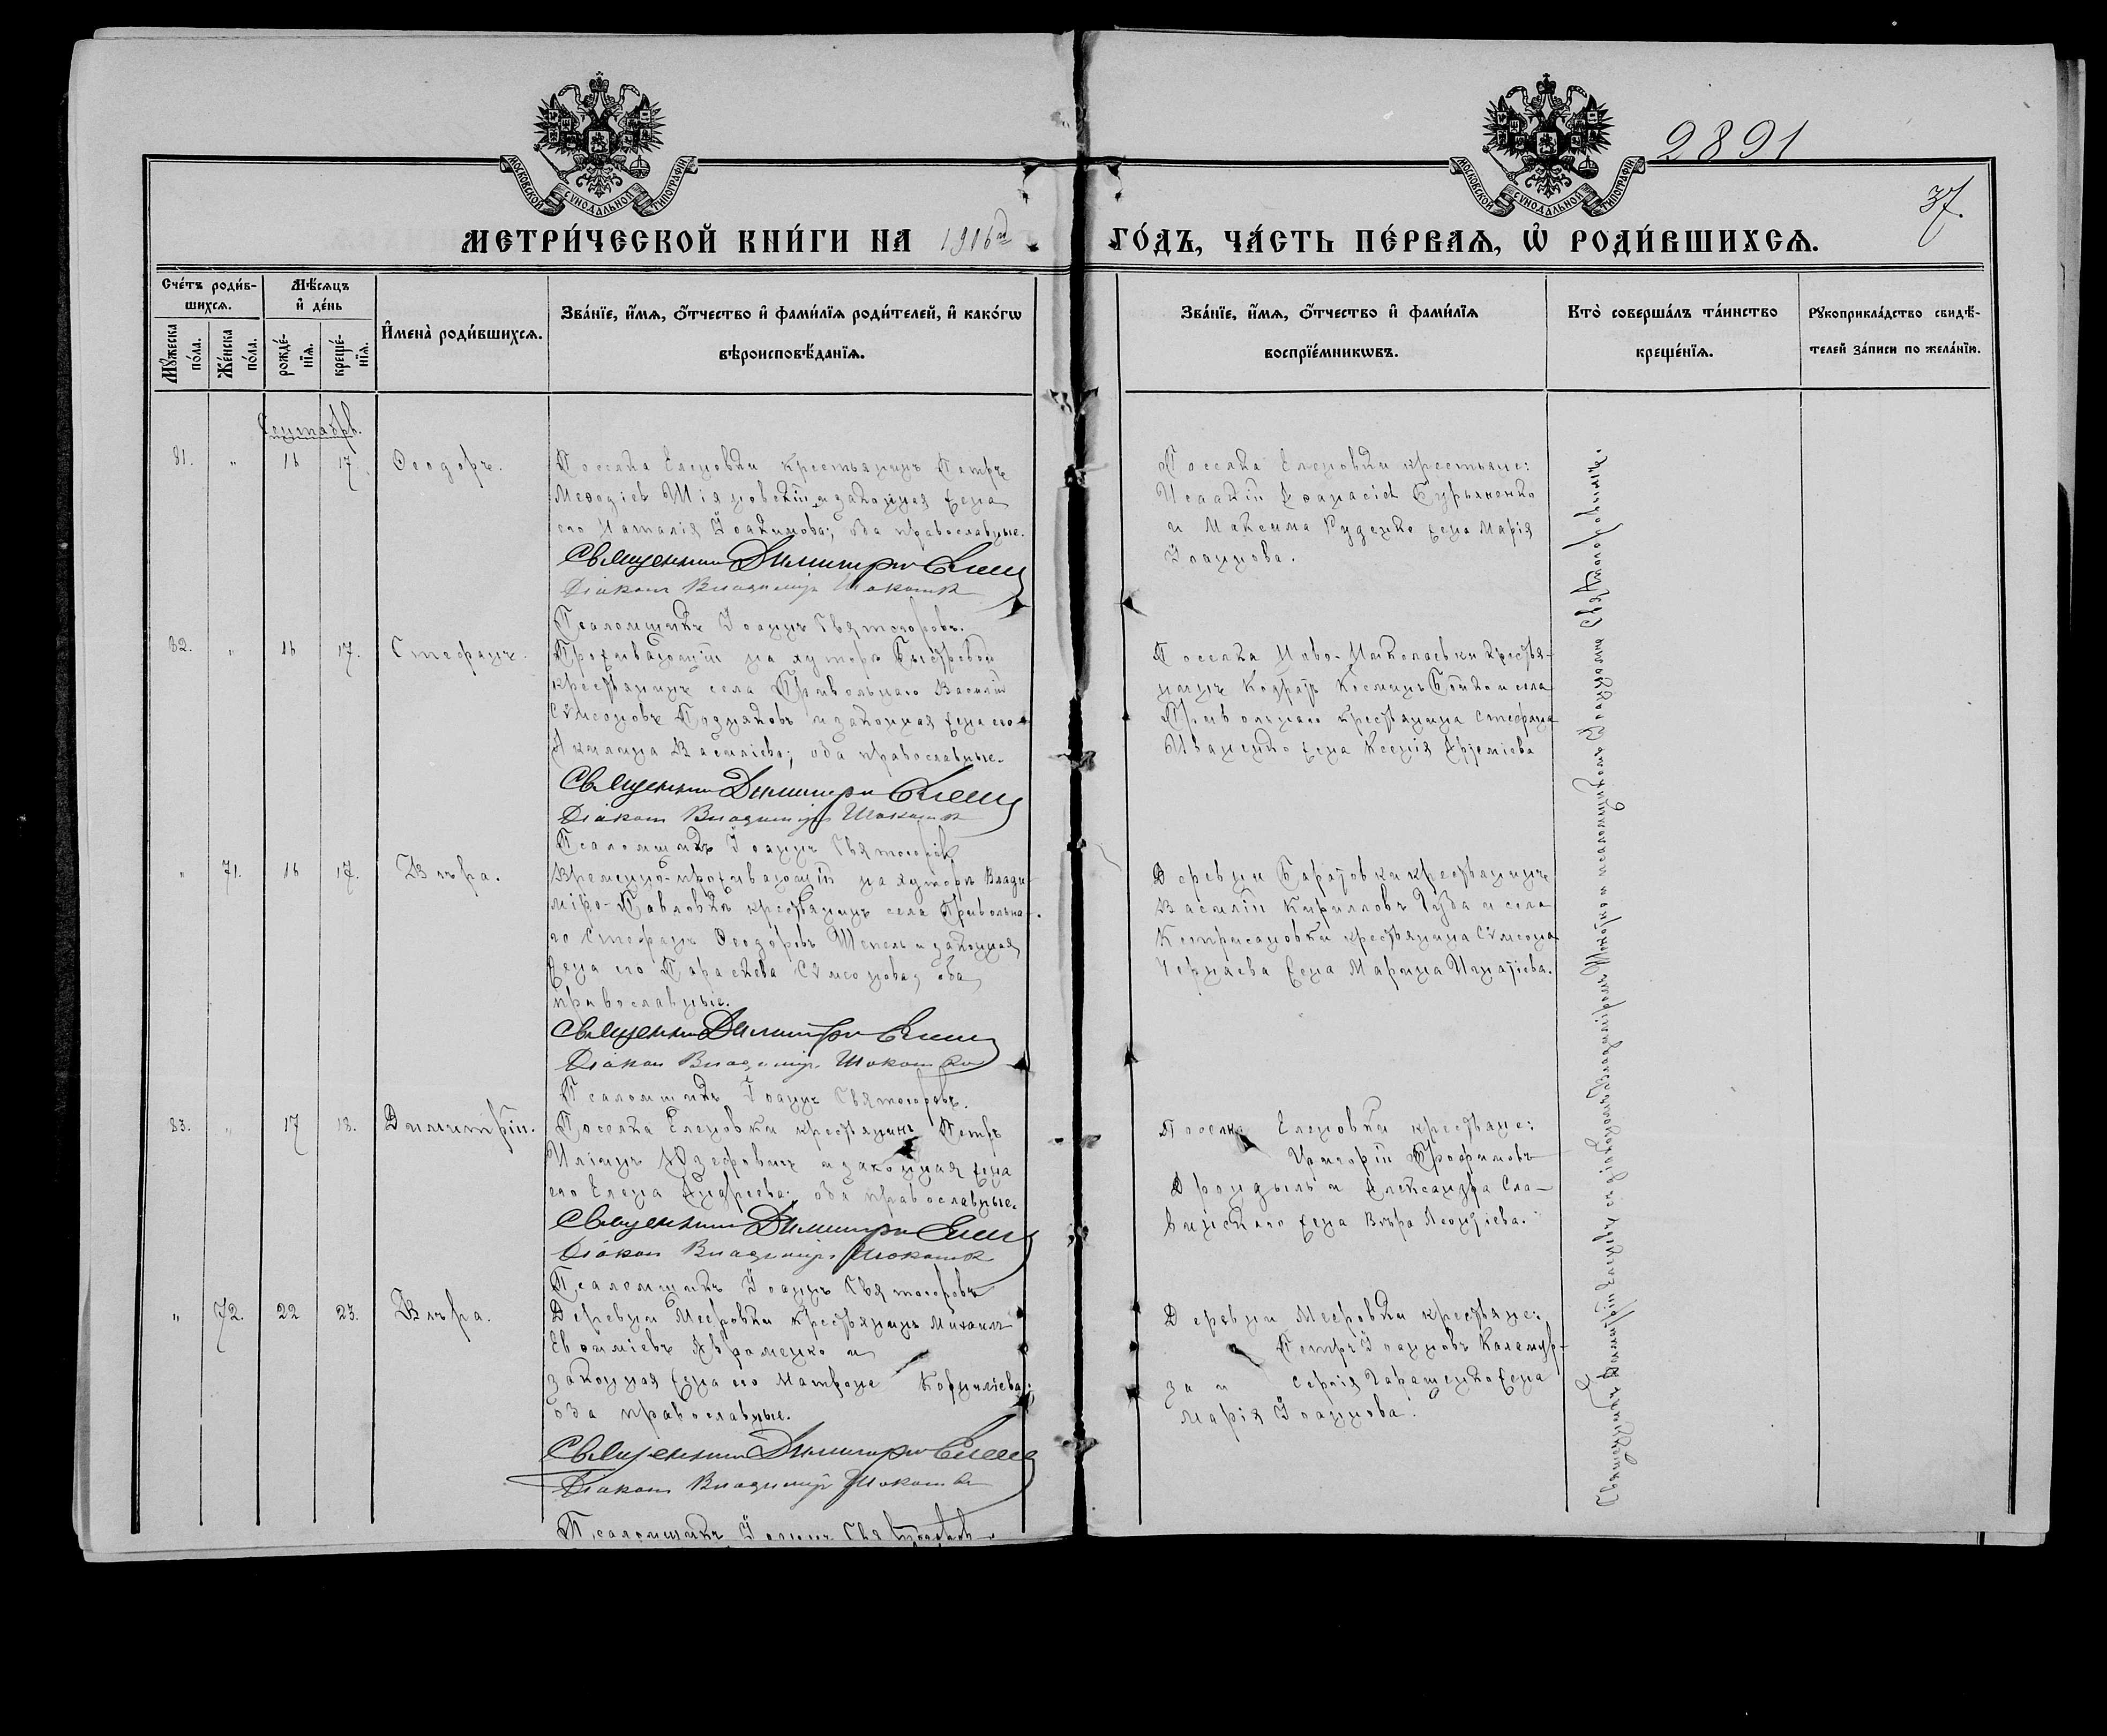 2891
37.
МОСКОВСКОЙ СѴНОДАЛЬНОЙ ТИПОГРАФІИ
МОСКОВСКОЙ СѴНОДАЛЬНОЙ ТИПОГРАФІИ
МЕТРИ́ЧЕСКОЙ КНИ́ГИ НА 1916й ГО́ДЪ, ЧА́СТЬ ПЕ́РВАѦ, Ѡ҆ РОДИ́ВШИХСѦ.
Сче́тъ роди́в-
шихсѧ.
Мꙋ́жеска по́ла.
Же́нска по́ла.
Мѣ́сѧцъ
и҆ де́нь
рожде́-
нїѧ.
креще́-
нїѧ.
И҆мена̀ роди́вшихсѧ.
Зва́нїе, и҆́мѧ, ѻ҆́тчество и҆ фами́лїѧ роди́телей, и҆ како́гѡ
вѣроисповѣ́данїѧ.
Зва́нїе, и҆́мѧ, ѻ҆́тчество и҆ фами́лїѧ
воспрїе́мникѡвъ.
Кто̀ соверша́лъ та́инство
креще́нїѧ.
Рꙋкоприкла́дство свидѣ́-
телей за́писи по жела́нїю.
Сентябрь.
81. " 16 17. Ѳеодоръ.
Поселка Еленовки крестьянинъ Петръ
Меѳодіевъ Шіяновскій и законная жена
его Наталія Іоакимова; оба православные.
Священникъ Димитрій
Діаконъ Владиміръ
Псаломщикъ Іоаннъ Святогоровъ.
Поселка Еленовки крестьяне:
Исаакій Аѳанасіевъ Бурьяненко
и Максима Руденко жена Марія
Іоаннова.
82. " 16 17. Стефанъ.
Проживающій на хуторѣ Быстровой
крестьянинъ села Привольнаго Василій
Сѵмеоновъ Поздняковъ и законная жена его
Акилина Василіева; оба православные.
Священникъ Димитрій
Діаконъ Владиміръ
Псаломщикъ Іоаннъ Святогоровъ
Поселка Ново-Николаевки крестья-
нинъ Кодратъ Косминъ Бойко и села
Привольнаго крестьянина Стефана
Иваненко жена Ксенія Артеміева
" 71. 16 17. Вѣра.
Временно-проживающій на хуторѣ Влади-
міро-Павловкѣ крестьянинъ села Привольна-
го Стефанъ Ѳеодоровъ Шепель и законная
жена его Параскева Сѵмеонова; оба
православные.
Священникъ Димитрій
Діаконъ Владиміръ
Псаломщикъ Іоаннъ Святогоровъ.
Деревни Баратовки крестьянинъ
Василій Кирилловъ Губа и села
крестьянина Сѵмеона
Чернаева жена Марина Игнатіева.
83. " 17 18. Димитрій.
Поселка Еленовки крестьянинъ Петръ
Иліинъ Юзефовичъ и законная жена
его Елена Андреева; оба православные.
Священникъ Димитрій
Діаконъ Владиміръ
Псаломщикъ Іоаннъ Святогоровъ
Поселка Еленовки крестьяне:
Григорій Трофимовъ
Дрондыль и Александра Сла-
винскаго жена Вѣра Леонтіева.
" 72. 22 23. Вѣра.
Деревни Мееровки крестьянинъ Михаилъ
Евѳиміевъ Авраменко и
законная жена его Матрона Корниліева;
оба православные.
Священникъ Димитрій
Діаконъ Владиміръ
Псаломщикъ Іоаннъ Святогоровъ
Деревни Мееровки крестьяне:
Петръ Іоанновъ
за и Сергія Гаращенко жена
Марія Іоаннова.
Священникъ Димитрій съ діакономъ Владиміромъ и псаломщикомъ Іоанномъ Святогоровымъ.